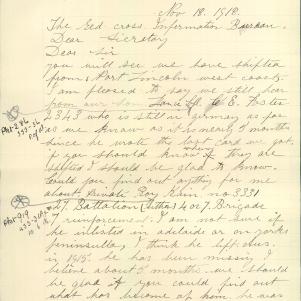 Nov 18. 1918.
The Red cross Information Bureau.
Dear Secretary
Dear Sir
you will see we have shifted
from Port Lincoln west coast.
I am pleased to say we still hear
from our son C. E. Foster
2343 who is still in germany as far
as we know as it is nearly 3 months
since he wrote the last card we got.
if you should know if they are
shifted I should be glad to know.
Could you find out anything for me
about Private no 3331
27 Battalion 7 Brigade
reinforcement. I am not sure if
he inlisted in adelaide or on yorks
peninsulla, I think he left aus.
in 1915. he has been missing I
believe about 3 months. we should
be glad if you could find out
what has become of him he was